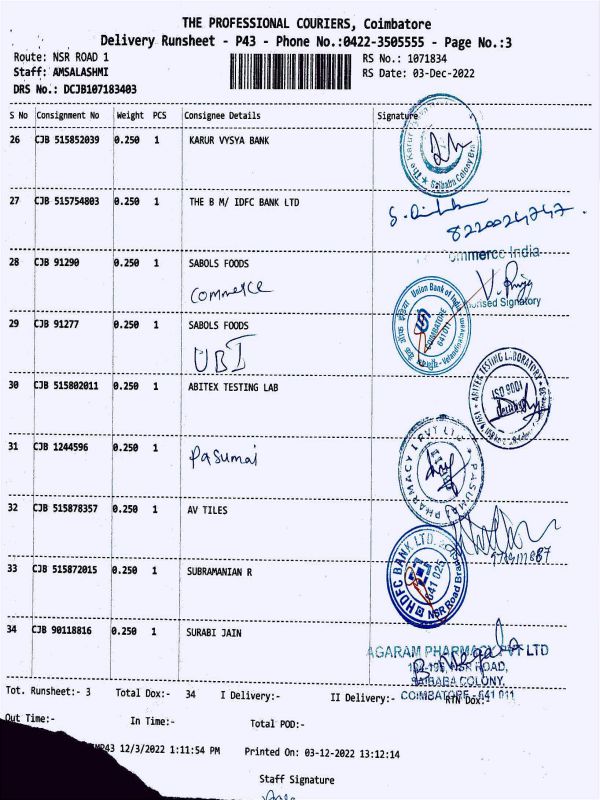 THE PROFESSIONAL COURIERS, Coimbatore
Delivery Runsheet - P43 - Phone No.:0422-3505555 - Page No.:3
Route: NSR ROAD 1
RS No.: 1071834
Staff: AMSALASHMI
RS Date: 03-Dec-2022
DRS No.: DCJB107183403
S No Consignment No Weight PCS Consignee Details Signature
26 CJB 515852039 0.250 1 KARUR VYSYA BANK
The Karur
Saibaba Colony
27 CJB 515754803 0.250 1 THE B M/ IDFC BANK LTD
8220024747
ommerce India
28 CJB 91290 0.250 1 SABOLS FOODS
Commerce
V. Priya
orised Signatory
Union Bank of India
COIMBATORE
641011
29 CJB 91277 0.250 1 SABOLS FOODS
UBI
30 CJB 515802011 0.250 1 ABITEX TESTING LAB
ABITEX TESTING LABORATORY
ISO 9001
31 CJB 1244596 0.250 1
Pasumai
PASUMAI PHARMACY
PVT LTD
32 CJB 515878357 0.250 1 AV TILES
33 CJB 515872015 0.250 1 SUBRAMANIAN R
HDFC BANK LTD.
641 025
NSR Road Branch
34 CJB 90118816 0.250 1 SURABI JAIN
AGARAM PHARMACY PVT LTD
NSR ROAD,
SAIBABA COLONY,
COIMBATORE - 641 011
Tot. Runsheet:- 3 Total Dox:- 34 I Delivery:- II Delivery:- RTN Dox:-
Out Time:- In Time:- Total POD:-
P43 12/3/2022 1:11:54 PM Printed On: 03-12-2022 13:12:14
Staff Signature